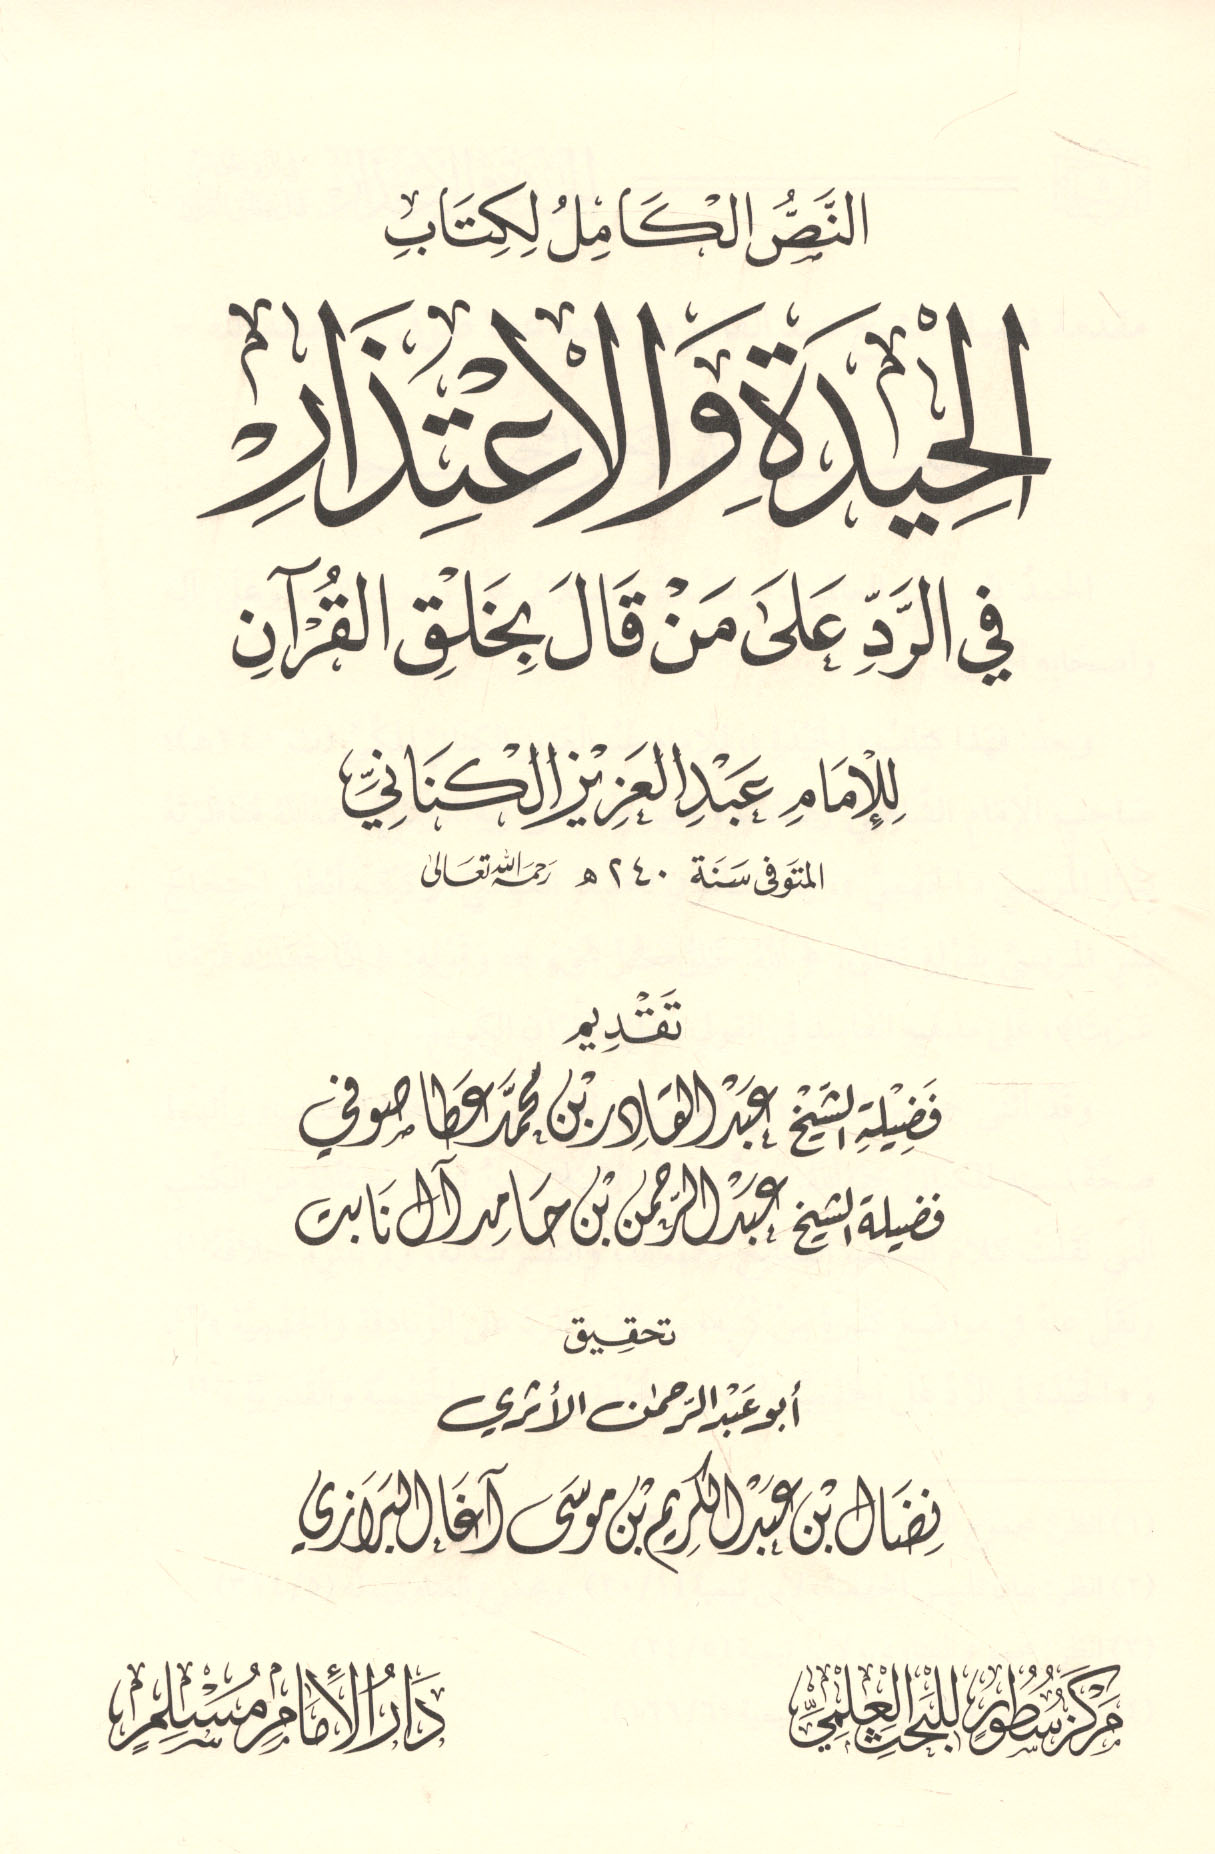 النَّصُّ الْكَامِلُ لِكِتَابِ
الحِيدَةُ وَالاعْتِذَارُ
فِي الرَّدِّ عَلَى مَنْ قَالَ بِخَلْقِ القُرْآنِ
لِلإمَامِ عَبْدِ العَزِيْزِ الْكنَانِيِّ
المتوَفى سَنَة ٢٤٠ هـ رحمه الله تعَالى
تَقْدِيم
فَضِيْلَةِ الشَّيْخِ عَبْدِ القَادِر بْن مُحَمَّد عَطَا صُوفي
فَضِيلَة الشَيخ عَبْد الرَّحمن بْن حَامِد آل نَابِت
تحقِيق
أبو عَبْد الرَّحمٰن الأثري
نِضَال بْن عَبْد الكَرِيم بْن مُوسَى آغَا البَرَازي
مَرْكَزُ سُطُورٍ للبَحْثِ العِلْمِيِّ
دَارُ الإمَامِ مُسْلِمٍ